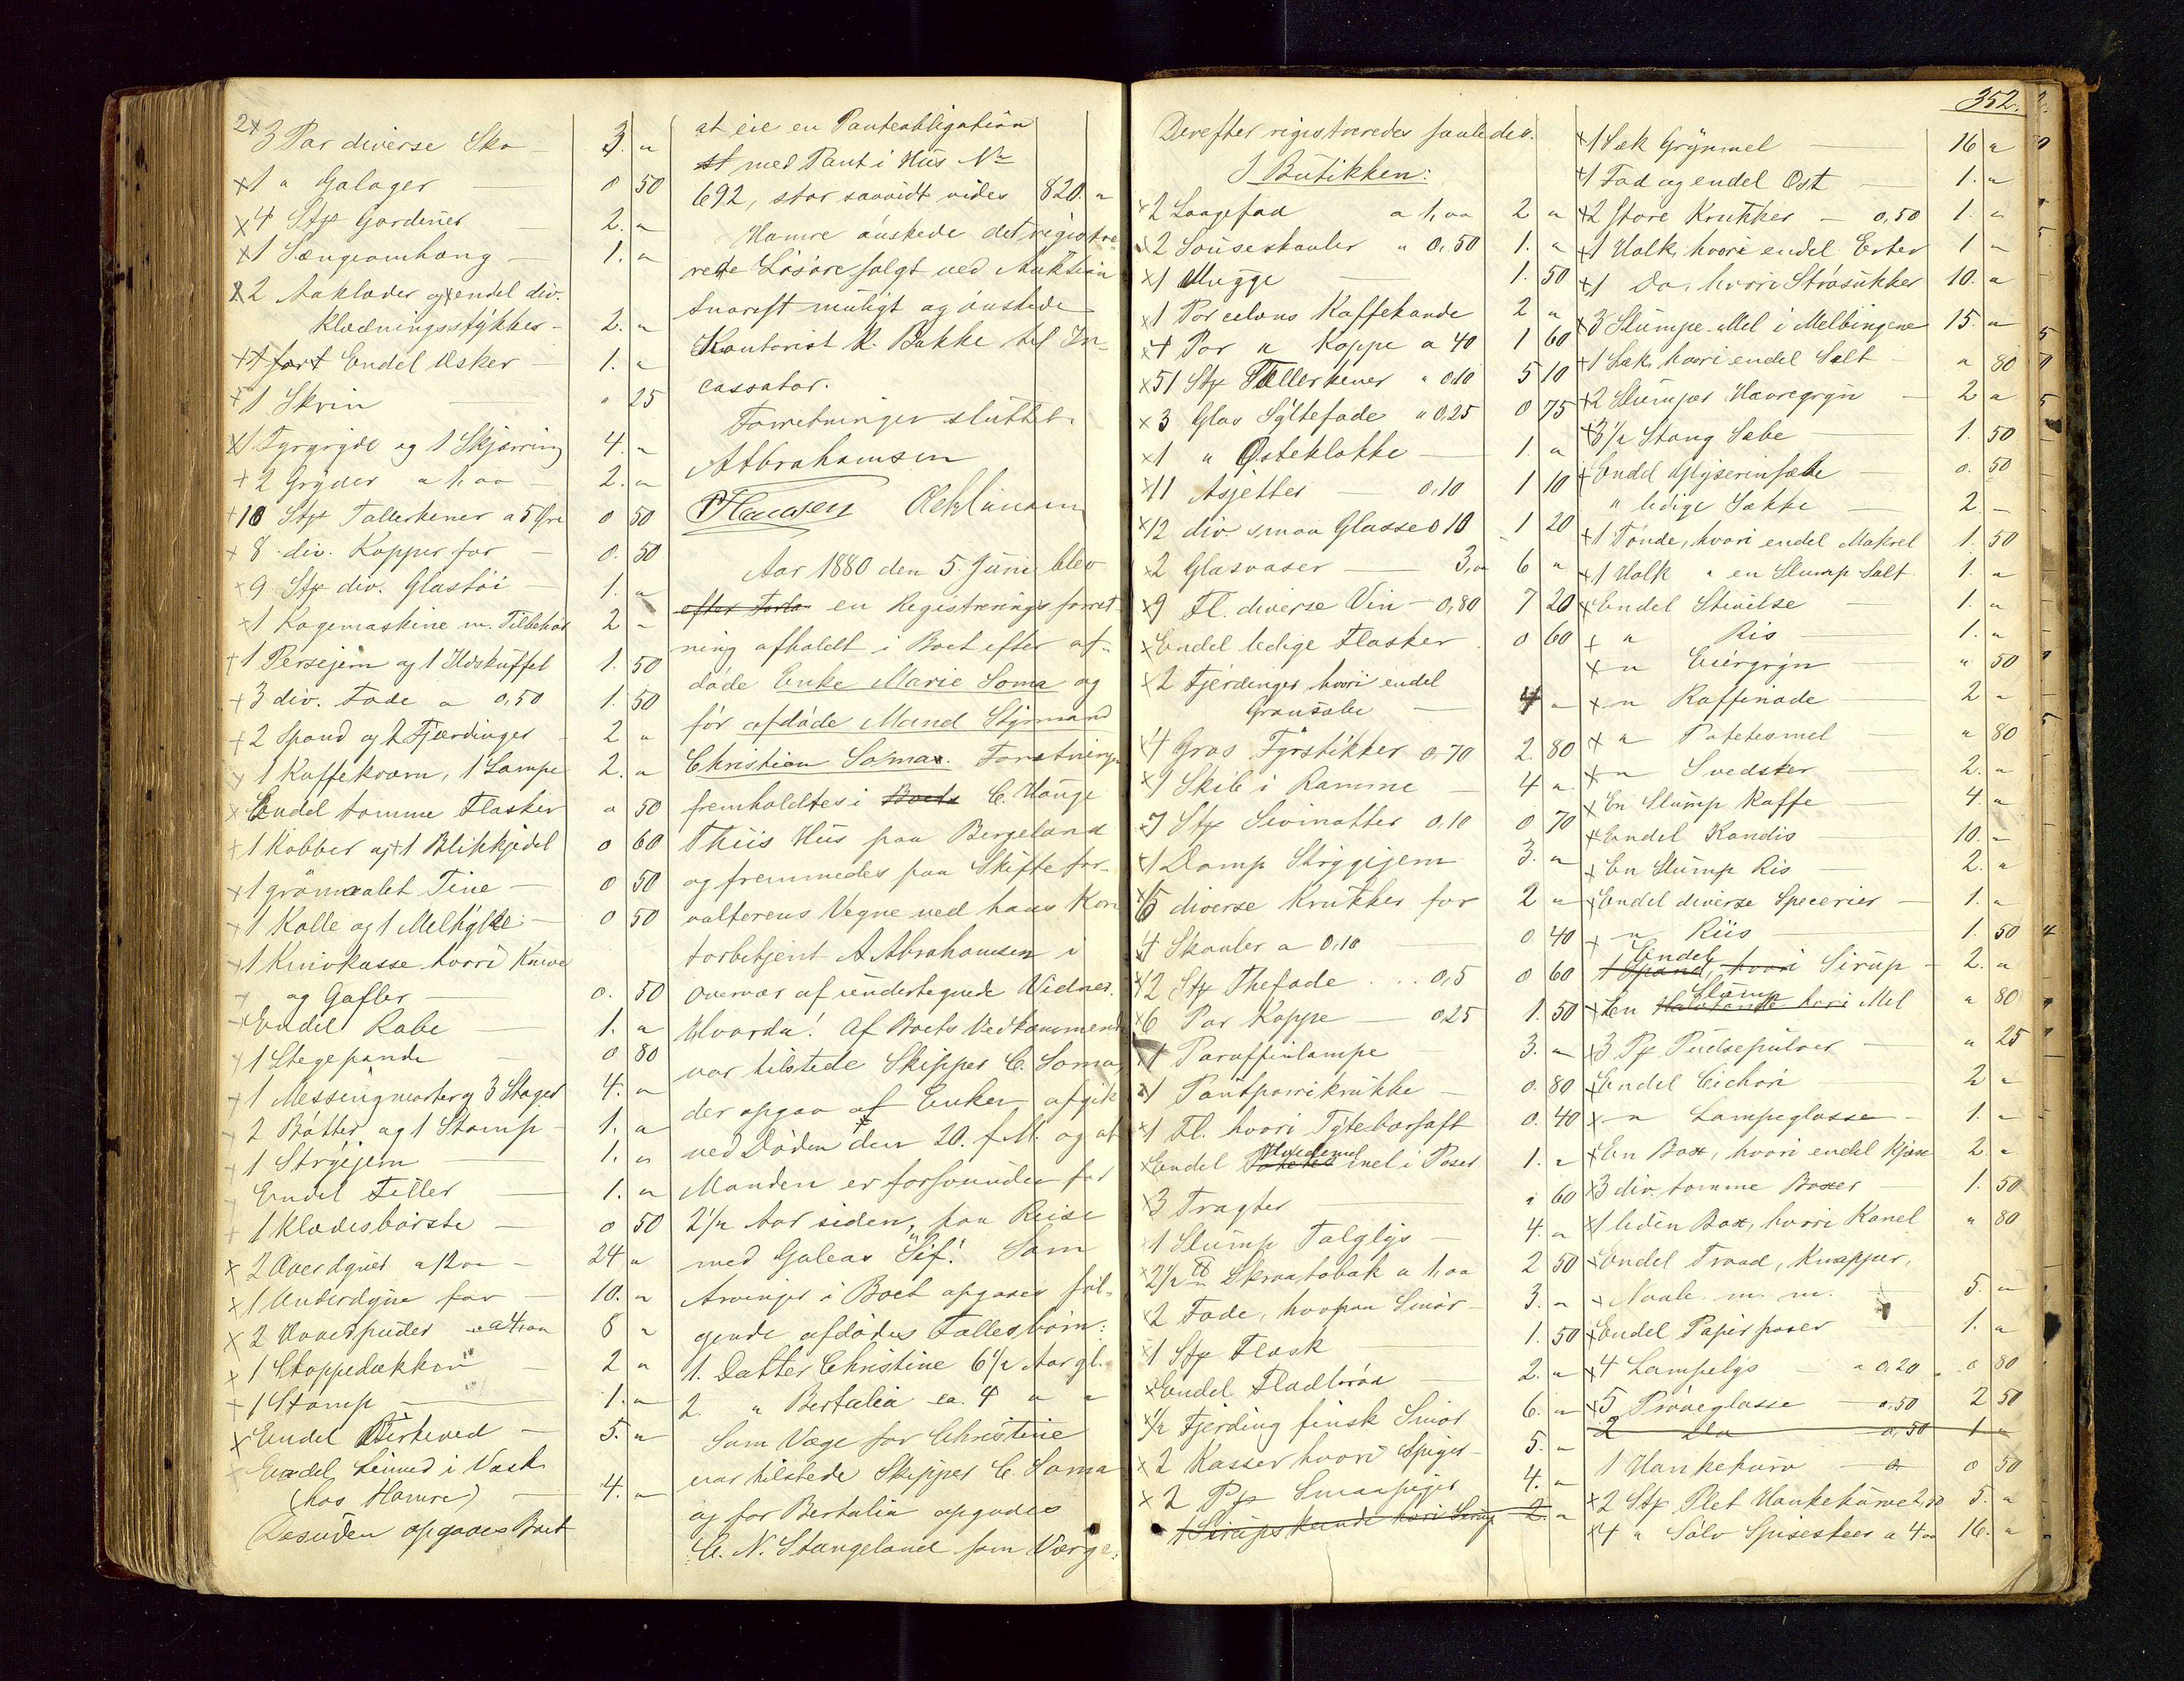 3 Par diverse Sko — 3. "
1 " Galoger — 0 50
4 Stk Gardiner — 2. "
1 Sængeomhæng — 1. "
2 Aaklæder og endel div.
Klædningsstykker — 2. "
Endel Æsker — 1. "
1 Skrin — " 25
1 Fyrgryde og 1 Skjørring 4. "
2 Gryder a 1,00 — 2. "
10 Stk Tallerkener a 5 Øre 0 50
8 div. Kopper for — 0. 50
9 Stk div. Glastøi — 1. "
1 Kogemaskine m. Tilbehør 2 "
1 Persejern og 1 Ildskuffel 1. 50
3 div. Fade a 0,50 1. 50
2 Spand og 2 Fjærdinger 2 "
1 Kaffekværn, 1 Lampe 2. "
Endel tomme Flasker " 50
1 Kobber og 1 Blikkjedel 0 60
1 grönmalet Tine — 0 50
1 Kolle og 1 Melhylde — 0 50
1 Knivkasse hvori Knive
og Gafler — 0. 50
Endel Kabe — 1. "
1 Stegepande — 0 80
1 Messingmorter og 3 Stager 4. "
2 Bøtter og 1 Stamp — 1. "
1 Strygejern — 1. "
Endel Filler — 1. "
1 Klædesbørste — 0 50
2 Overdyner a 12 " — 24 "
1 Underdyne for — 10. "
2 Hovedpuder a 4,00 8 "
1 Stoppedækken — 2 "
1 Stamp — 1. "
Endel Birkeved — 5. "
Endel Linned i Vask
(hos Hamre) — 4. "
Desuden opgaves Boet
at eie en Panteobligation
med Pant i Hus No
692, stor saavidt vides 820. "
Hamre ønskede det registre-
rede Løsøre solgt ved Auktion
snarest muligt og ønskede
Kontorist K. Bakke til In-
cassator.
Forretningen sluttet.
A Abrahamsen
Hansen
Aar 1880 den 5. Juni blev
en Registreringsforret-
ning afholdt i Boet efter af-
døde Enke Marie Soma og
før afdøde Mand Styrmand
Christian Soma. Forretningen
fremholdtes i Boets C. Hauge
Thiis Hus paa Bergeland
og fremmedes paa Skiftefor-
valterens Vegne ved hans Kon-
torbetjent A. Abrahamsen i
Overvær af undertegnede Vidner.
Hvorda! Af Boets Vedkommende
var tilstede Skipper C. Soma,
der opgav at Enken afgik
ved Døden den 20. f. M. og at
Manden er forsvunden for
2 1/2 Aar siden, paa Reise
med Galeas "Sif". Som
Arvinger i Boet opgaves føl-
gende afdødes Fællesbørn:
1. Datter Christine 6 1/2 Aar gl.
2. " Bertalia ca. 4 " "
Som Værge for Christine
var tilstede Skipper C. Soma
og for Bertalia opgaves
C. N. Stangeland som Værge.
352.
Derefter registreredes saaledes.
I Butikken:
2 Laagefad a 1,00 2 "
2 Souseskaaler " 0,50 1. "
1 Mugge — 1. 50
1 Porcelæns Kaffekande 2 "
4 Par " Koppe a 40 1 60
51 Stk Tallerkener " 0.10 5 10
3 Glas Syltefade " 0,25 0 75
1 " Osteklokke — 1. "
11 Asjetter — 0,10 1 10
12 div. smaa Glasse 0 10 1 20
2 Glasvaser — 3,00 6 "
9 Fl. diverse Vin — 0,80 7 20
Endel ledige Flasker 0 60
2 Fjerdinger hvori endel
Grønsæbe — 4 "
4 Gros Fyrstikker 0,70 2. 80
1 Skib i Ramme — 4 "
7 Stk Sivmatter 0,10 0 70
1 Damp Strygejern 3. "
6 diverse Krukker for 2 "
4 Skaaler a 0,10 0 40
12 Stk Thefade ... 0,5 0 60
6 Par Koppe — 0,25 1. 50
1 Paraffinlampe — 3. "
1 — 0. 80
1 Fl. hvori Tytebærsaft 0. 40
Endel Hvedemel mel i Poser 1. "
3 Tragter — " 60
1 Slump Talglys — 4. "
2 1/2 ℔ Skraatobak a 1,00 2 50
2 Fade, hvorpaa Smør — 3. "
1 Stk Flesk — 1. 50
Endel Fladbrød — 2. "
1/2 Fjerding finsk Smør 6. "
2 Kasser hvori Spiger — 5. "
2 Pk Smaaspiger 4. "
1 Sirupskande hvori Sirup 2. "
1 Sæk Grynmel — 16 "
1 Fad og endel Ost — 1. "
2 store Krukker — 0,50 1. "
1 Halk, hvori endel Erter 1 "
1 Do, hvori Strøsukker 10. "
3 Slumpe Mel i Melbingene 15. "
1 Sæk, hvori endel Salt — " 80
2 Slumper Havregryn — 2 "
3 1/2 Stang Sæbe — 1. 50
Endel Glyserinsæbe — 0. 50
" ledige Sække — 2. —
1 Tønde, hvori endel Makrel 1. 50
1 Halk " en Slump Salt 1. "
Endel Stivelse — 1. "
" Ris 1. "
" Eiergryn " 50
" Raffinade — 2 "
" Potetesmel — " 80
" Svedsker 2. "
En Slump Kaffe — 4. "
Endel Kandis — 10. "
En Slump Ris — 2. "
Endel diverse Specerier — 1. "
" Riis — 1. 50
Endel
1 Spand, hvori Sirup — 2. "
Slump
En Halvtønde hvori Mel " 80
3 Pk Pudsepulver — " 25
Endel Cichori — 2 "
" Lampeglasse — 1. "
En Box, hvori endel Kjæx 2. "
3 div. tomme Boxer — 1. 50
1 liden Box, hvori Kanel " 80
Endel Traad, Knapper,
Naale m. m. — 5. "
Endel Papirposer — 1. "
4 Lampelys — " 0,20 0 80
5 Prøveglasse — 0,50 2 50
2 Do — 0,50 1 "
1 Hankekurv — 0 50
2 Stk Plet Hankekurve 2,50 5. "
4 " Sølv Spiseskeer a 4 00 16. "